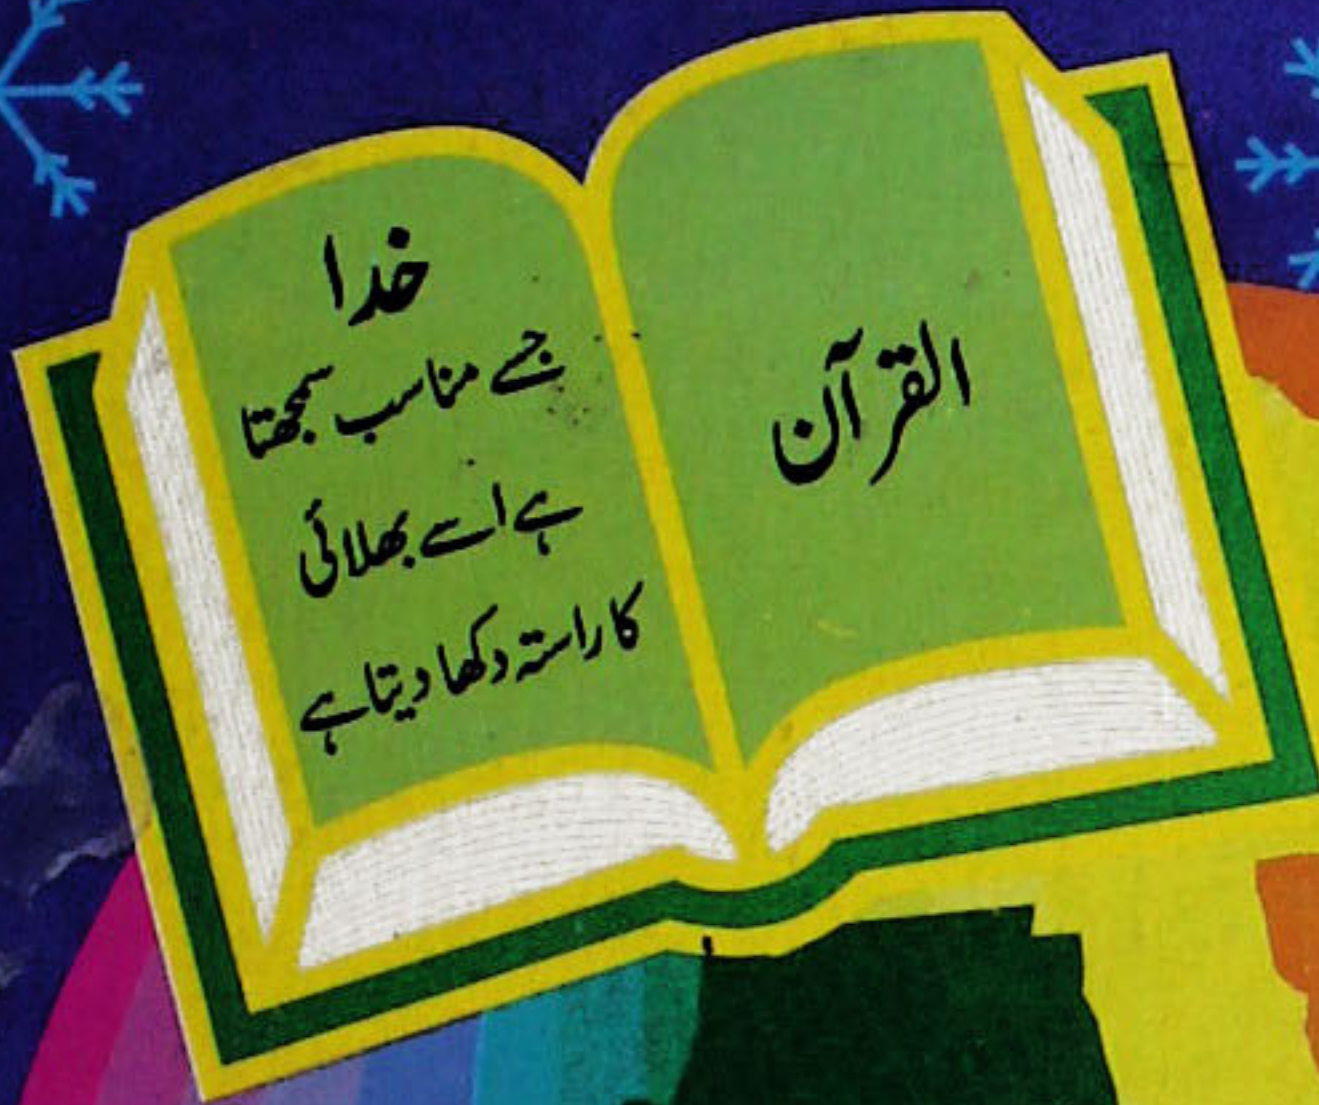 القرآن
خدا
جسے مناسب سمجھتا
ہے اسے بھلائی
کا راستہ دکھا دیتا ہے